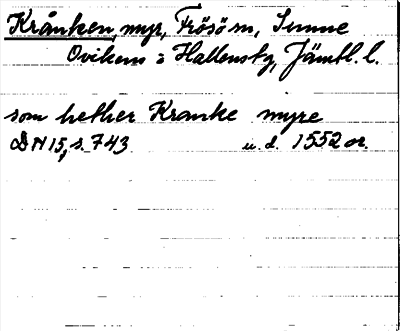 Kränken, myr, Frösö sn, Sunne
Ovikens o Hallens tg, Jämtl. l.
som hether Kranke myre
DN 15, s. 743 u. d. 1552 or.